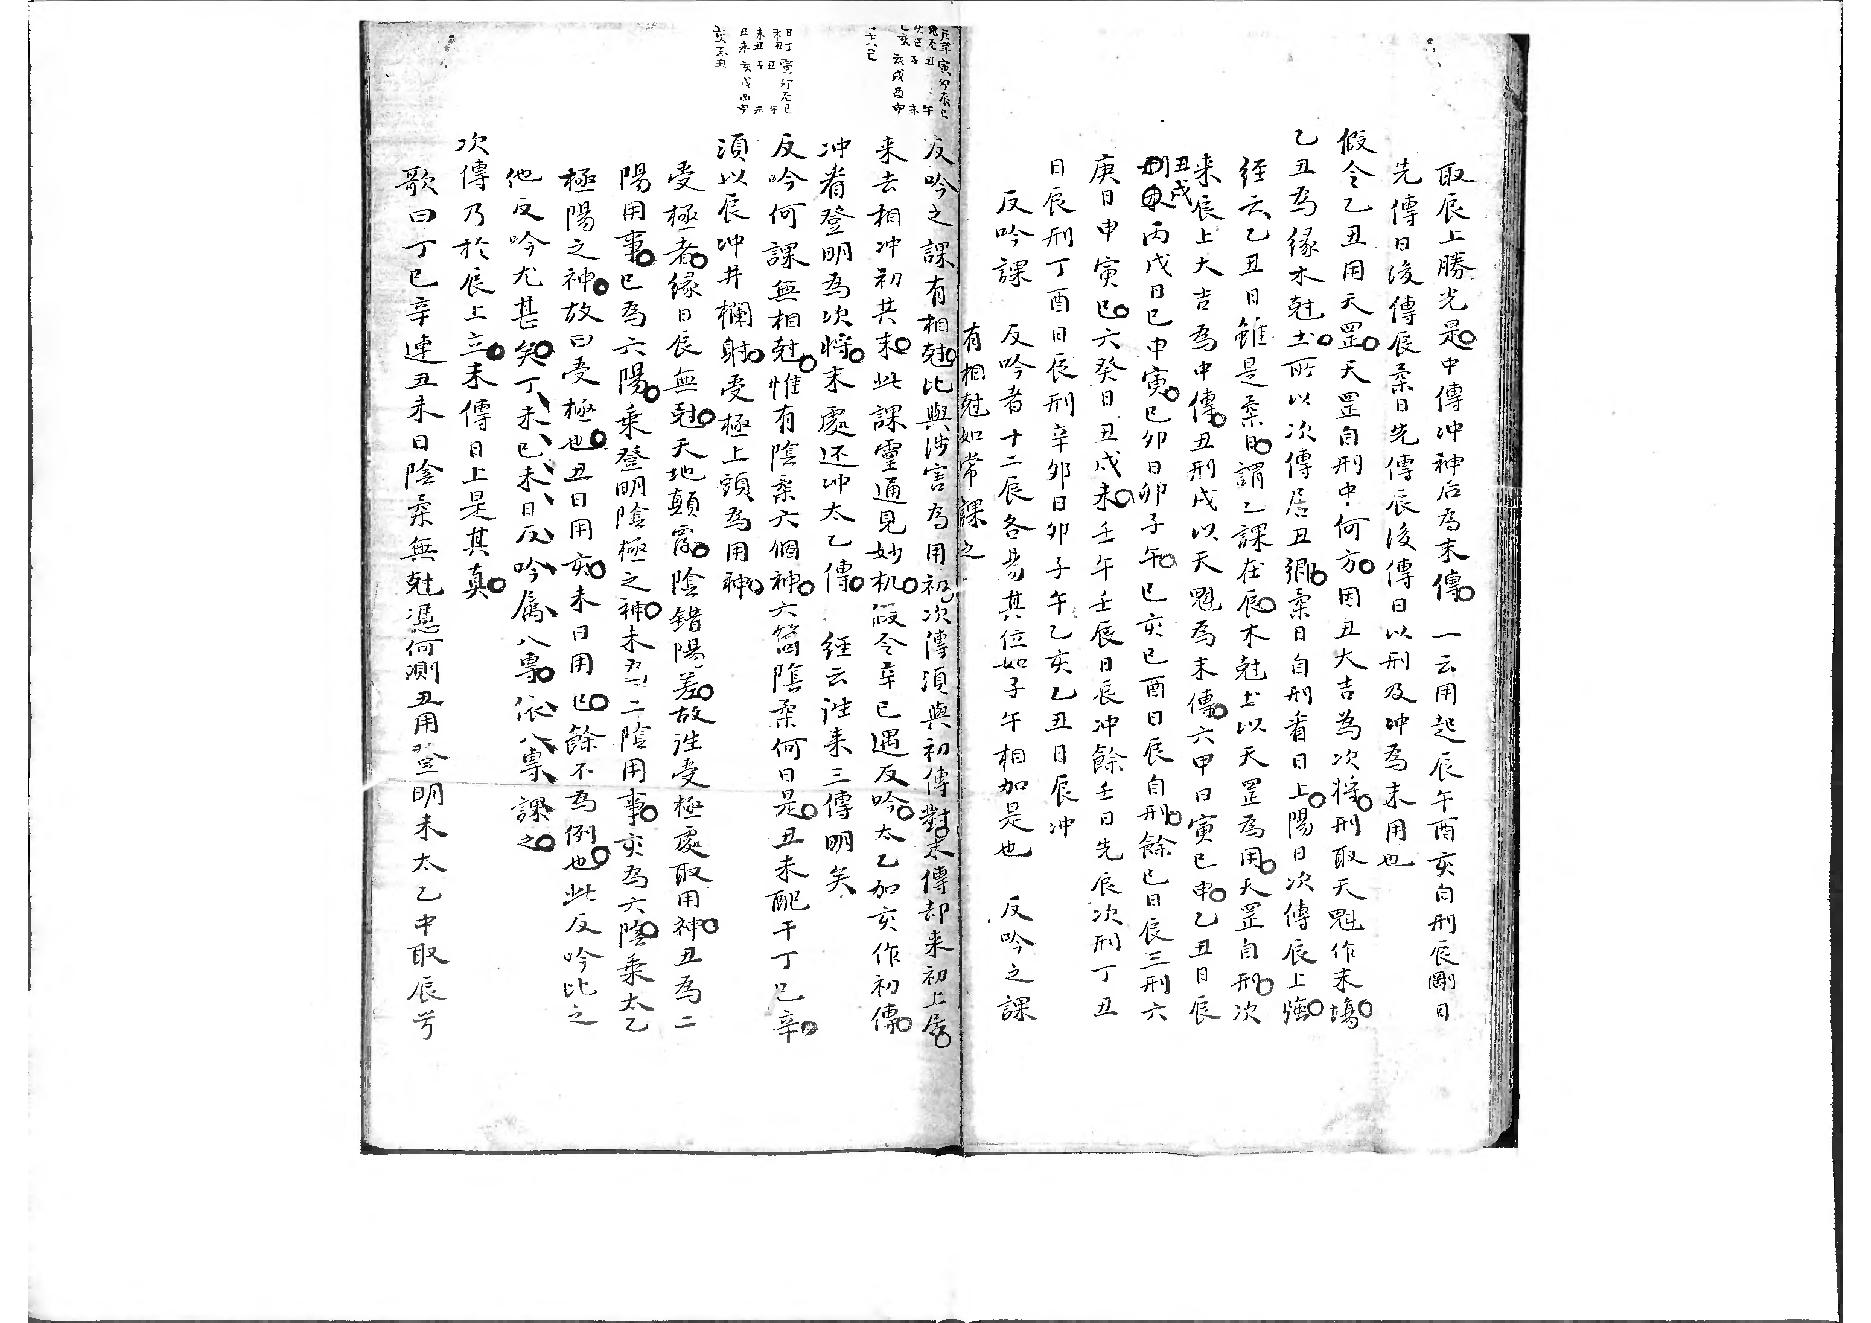 取辰上勝光是中傳冲神后為末傳一云用起辰午酉亥自刑辰剛日
先傳日後傳辰柔日先傳辰後傳日以刑及冲為末用也
假令乙丑用天罡天罡自刑中何方因丑大吉為次將刑取天魁作末塲
乙丑為緣木尅土所以次傳居丑鄉柔日自刑看日上陽日次傳辰上強
經云乙丑日雖是柔日謂乙課在辰木尅土以天罡為用天罡自刑次
来辰上大吉為中傳丑刑戌以天魁為末傳六甲日寅巳申乙丑日辰
丑戌
丙戊日巳申寅己卯日卯子午己亥己酉日辰自刑餘己日辰三刑六
庚日申寅巳六癸日丑戌未壬午壬辰日辰冲餘壬日先辰次刑丁丑
日辰刑丁酉日辰刑辛卯日卯子午乙亥乙丑日辰冲
反吟課 反吟者十二辰各易其位如子午相加是也 反吟之課
有相尅如常課之
反吟之課有相尅比與涉害為用初次傳須與初傳對末傳却来初上居
来去相冲初共末此課靈通見妙机假令辛巳遇反吟太乙加亥作初傳
冲者登明為次將末處还冲太乙傳 經云往来三傳明矣
反吟何課無相尅惟有陰柔六個神六箇陰柔何日是丑未配干丁己辛
須以辰冲井欄射受極上頭為用神
受極者緣日辰無尅天地顛覆陰錯陽差故往受極處取用神丑為二
陽用事巳為六陽乘登明陰極之神未為二陰用事亥為六陰乘太乙
極陽之神故曰受極也丑日用亥未日用巳餘不為例也此反吟比之
他反吟尤甚矣丁未己未日反吟属八專依八專課之
次傳乃於辰上立末傳日上是其真
歌曰丁己辛連丑未日陰柔無尅憑何測丑用登明未太乙中取辰兮